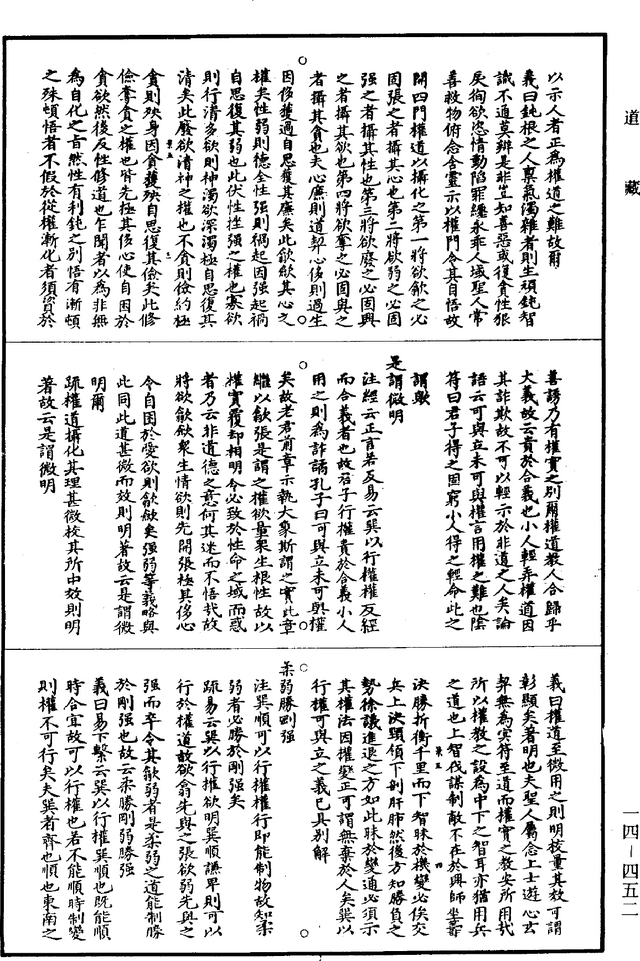 道藏
以示人者正為權道之難故爾
義曰鈍根之人稟氣濁雜者則生頑鈍智
識不通莫辨是非豈知善惡或復貪性狠
戾徇欲恣情動陷罪纏永乖人域聖人常
善救物俯念含靈示以權門令其自悟故
開四門權道以攝化之第一將欲歙之必
固張之者攝其心也第二將欲弱之必固
强之者攝其性也第三將欲廢之必固興
之者攝其欲也第四將欲奪之必固與之
者攝其貪也夫心廉則道契心侈則過生
因侈獲過自思復其廉矣此歙斂其心之
權矣性弱則德全性强則禍起因强起禍
自思復其弱也此伏性挫强之權也寡欲
則行清多欲則神濁欲深濁極自思復其
清矣此廢欲清神之權也不貪則儉約極
貪則殃身因貪獲殃自思復其儉矣此修
儉奪貪之權也皆先極其侈心使自困於
貪欲然後反性修道也乍聞者以為非無
為自化之旨然性有利鈍之別悟有漸頓
之殊頓悟者不假於從權漸化者須資於
善誘乃有權實之別爾權道教人合歸乎
大義故云貴於合義也小人輕弄權道因
其詐欺故不可以輕示於非道之人矣論
語云可與立未可與權言用權之難也陰
符曰君子得之固窮小人得之輕命此之
謂歟
是謂微明
注經云正言若反易云巽以行權權反經
而合義者也故君子行權貴於合義小人
用之則為詐譎孔子曰可與立未可與權
矣故老君前章示執大象斯謂之實此章
繼以歙張是謂之權欲量眾生根性故以
權實覆却相明令必致於性命之域而惑
者乃云非道德之意何其迷而不悟哉故
將欲歙斂眾生情欲則先開張極其侈心
令自困於愛欲則歙斂矣强弱等義略與
此同此道甚微而效則明著故云是謂微
明爾
疏權道攝化其理甚微校其所由效則明
著故云是謂微明
義曰權道至微用之則明校量其效可謂
彰顯矣著明也夫聖人屬念上士遊心玄
契無為實符至道而權實之教安所用哉
所以權教之設為中下之智耳亦猶用兵
之道也上智伐謀制敵不在於興師坐籌
决勝折衝千里而下智昧於機變必俟交
兵上決頸領下剖肝肺然後方知勝負之
勢徐議進退之方如此昧於變通必須示
其權法因權變正可謂無棄於人矣巽以
行權可與立之義已具別解
柔弱勝剛强
注巽順可以行權權行即能制物故知柔
弱者必勝於剛强矣
疏易云巽以行權欲明巽順謙卑則可以
行於權道故欲翕先與之張欲弱先與之
强而卒令其歙弱者是柔弱之道能制勝
於剛强也故云柔勝剛弱勝强
義曰易下繫云巽以行權巽順也既能順
時合宜故可以行權也若不能順時制變
則權不可行矣夫巽者齊也順也東南之
一四－四五二